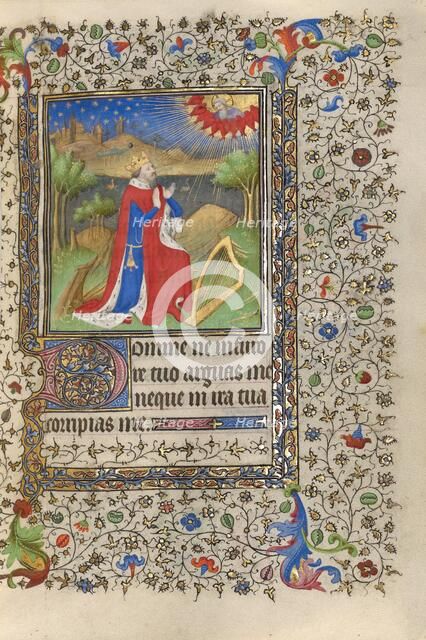 Domine ne in furo
re tuo arguas me
neque in ira tua
corripias me
Heritage
Heritage
Heritage
Heritage
Heritage
Heritage